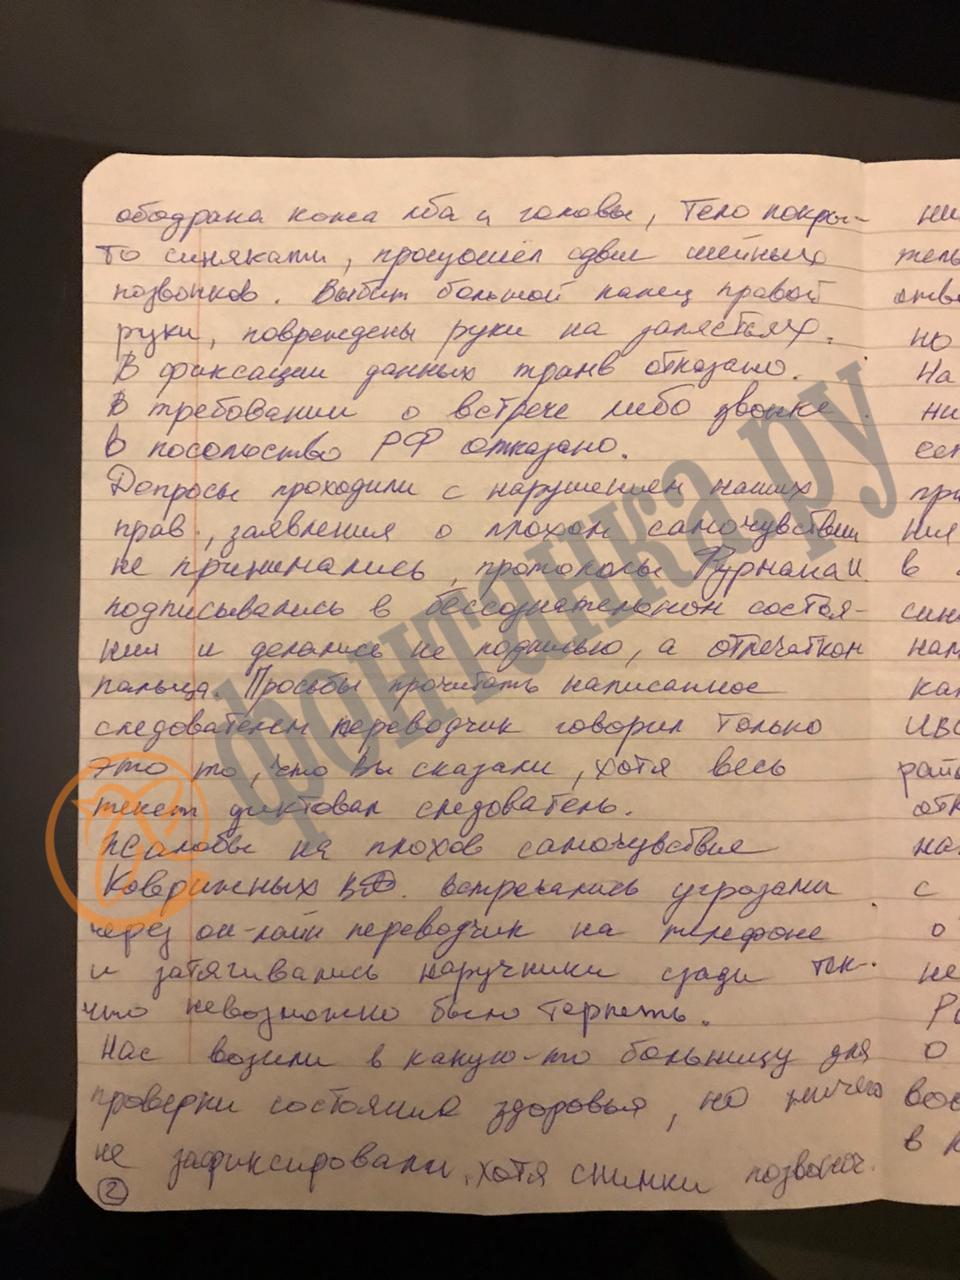 ободрана кожа лба и головы, Тело покры-
то синяками, произошёл сдвиг шейных
позвонков. Выбит большой палец правой
руки, повреждены руки на запястьях.
В фиксации данных травв отказано.
В требовании о встрече либо звонке
в посольство РФ отказано.
Допросы проходили с нарушением наших
прав, заявления о плохом самочувствии
не принимались, протоколы Фурманаи
подписывались в бессознательном состоя-
нии и делались не подписью, а отпечатком
пальца. Просьбы прочитать написанное
следователем переводчик говорил только
это то, что Вы сказали, хотя весь
текст диктовал следователь.
Жалобы на плохое самочувствие
Коврижных встречались угрозами
через он-лайн переводчик на телефоне
и затягивались наручники сзади так.
что невозможно было терпеть.
Нас возили в какую-то больницу для
проверки состояния здоровья, но ничего
не зафиксировали, хотя снимки позвоноч.
2
фонтанка.ру
ни
тель
отве
но
На
ни
ест
при
ния
в
син
нам
кап
ИВС
рай
отк
на
с
о
не
Ро
о
вос
в